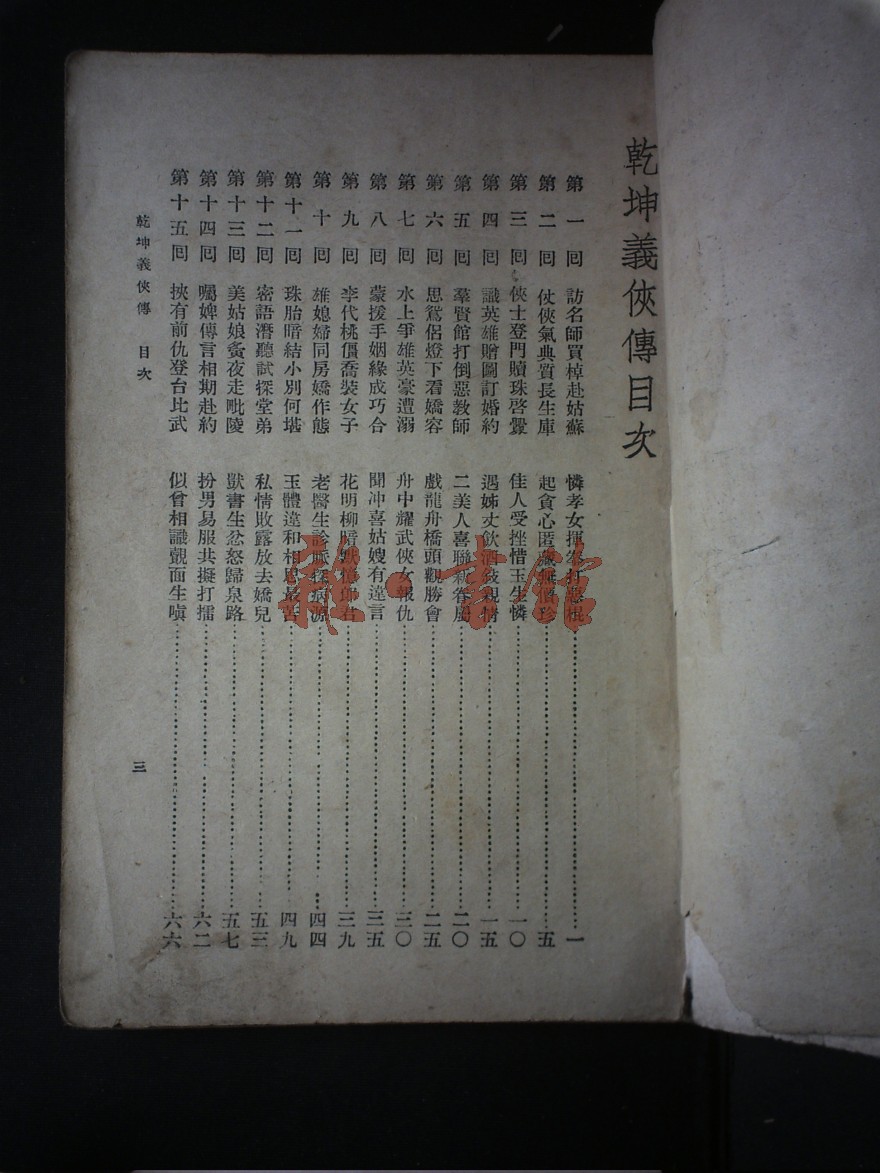 乾坤義俠傳目次
第一回 訪名師買棹赴姑蘇 憐孝女揮拳打惡棍 一
第二回 仗俠氣典質長生庫 起貪心匿藏無價珍 五
第三回 俠士登門贖珠啓釁 佳人受挫惜玉生憐 一〇
第四回 識英雄贈圖訂婚約 遇姊丈飲酒敍親情 一五
第五回 羣賢館打倒惡教師 二美人喜聯新眷屬 二〇
第六回 思鴛侶燈下看嬌容 戲龍舟橋頭觀勝會 二五
第七回 水上爭雄英豪遭溺 舟中耀武俠女報仇 三〇
第八回 蒙援手姻緣成巧合 聞冲喜姑嫂有違言 三五
第九回 李代桃僵喬裝女子 花明柳暗默 郎君 三九
第十回 雄媳婦同房嬌作態 老醫生診脈探病源 四四
第十一回 珠胎暗結小別何堪 玉體違和相思最苦 四九
第十二回 密語潛聽試探堂弟 私情敗露放去嬌兒 五三
第十三回 美姑娘夤夜走毗陵 獃書生忿怒歸泉路 五七
第十四回 囑婢傳言相期赴約 扮男易服共擬打擂 六二
第十五回 挾有前仇登台比武 似曾相識覿面生嗔 六六
乾坤義俠傳 目次
三